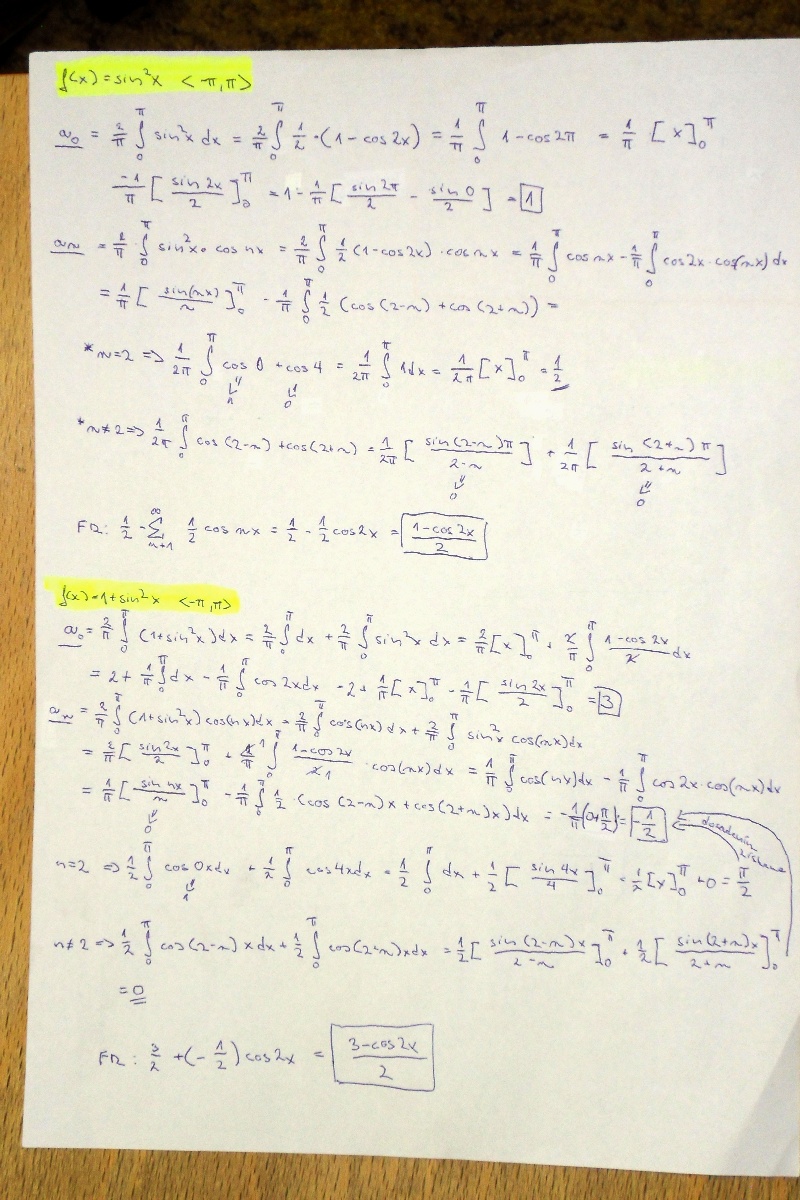 f(x) = sin²x <-π,π>
a₀ = 2/π ∫₀^π sin²x dx = 2/π ∫₀^π 1/2 · (1 - cos 2x) = 1/π ∫₀^π 1 - cos 2π = 1/π [x]₀^π
-1/π [sin 2x / 2]₀^π = 1 - 1/π [sin 2π / 2 - sin 0 / 2] = 1
aₙ = 2/π ∫₀^π sin²x · cos nx = 2/π ∫₀^π 1/2 (1-cos 2x) · cos nx = 1/π ∫₀^π cos nx - 1/π ∫₀^π cos 2x · cos(nx) dx
= 1/π [sin(nx) / n]₀^π - 1/π ∫₀^π 1/2 (cos (2-n) + cos (2+n)) =
* n=2 => 1/2π ∫₀^π cos 0 + cos 4 = 1/2π ∫₀^π 1dx = 1/2π [x]₀^π = 1/2
1 0
* n≠2 => 1/2π ∫₀^π cos (2-n) + cos(2+n) = 1/2π [sin (2-n)π / 2-n] + 1/2π [sin (2+n)π / 2+n]
0 0
FR: 1/2 - Σ_{n+1}^∞ 1/2 cos nx = 1/2 - 1/2 cos 2x = 1-cos 2x / 2
f(x) = 1+sin²x <-π,π>
a₀ = 2/π ∫₀^π (1+sin²x)dx = 2/π ∫₀^π dx + 2/π ∫₀^π sin²x dx = 2/π [x]₀^π + 2/π ∫₀^π 1-cos 2x / 2 dx
= 2 + 1/π ∫₀^π dx - 1/π ∫₀^π cos 2x dx - 2 + 1/π [x]₀^π - 1/π [sin 2x / 2]₀^π = 3
aₙ = 2/π ∫₀^π (1+sin²x) cos(nx)dx = 2/π ∫₀^π cos(nx) dx + 2/π ∫₀^π sin²x cos(nx)dx
= 2/π [sin 2x / 2]₀^π + 2/π ∫₀^π 1-cos 2x / 2 · cos(nx) dx = 1/π ∫₀^π cos(nx)dx - 1/π ∫₀^π cos 2x · cos(nx)dx
= 1/π [sin nx / n]₀^π - 1/π ∫₀^π 1/2 · (cos (2-n)x + cos(2+n)x) dx = -1/π (0+π/2) = -1/2 dosadením získame
0
n=2 => 1/2 ∫₀^π cos 0x dx + 1/2 ∫₀^π cos 4x dx = 1/2 ∫₀^π dx + 1/2 [sin 4x / 4]₀^π = 1/2 [x]₀^π + 0 = π/2
1
n≠2 => 1/2 ∫₀^π cos (2-n) x dx + 1/2 ∫₀^π cos(2+n)x dx = 1/2 [sin (2-n)x / 2-n]₀^π + 1/2 [sin(2+n)x / 2+n]₀^π
= 0
FR: 3/2 + (-1/2) cos 2x = 3-cos 2x / 2